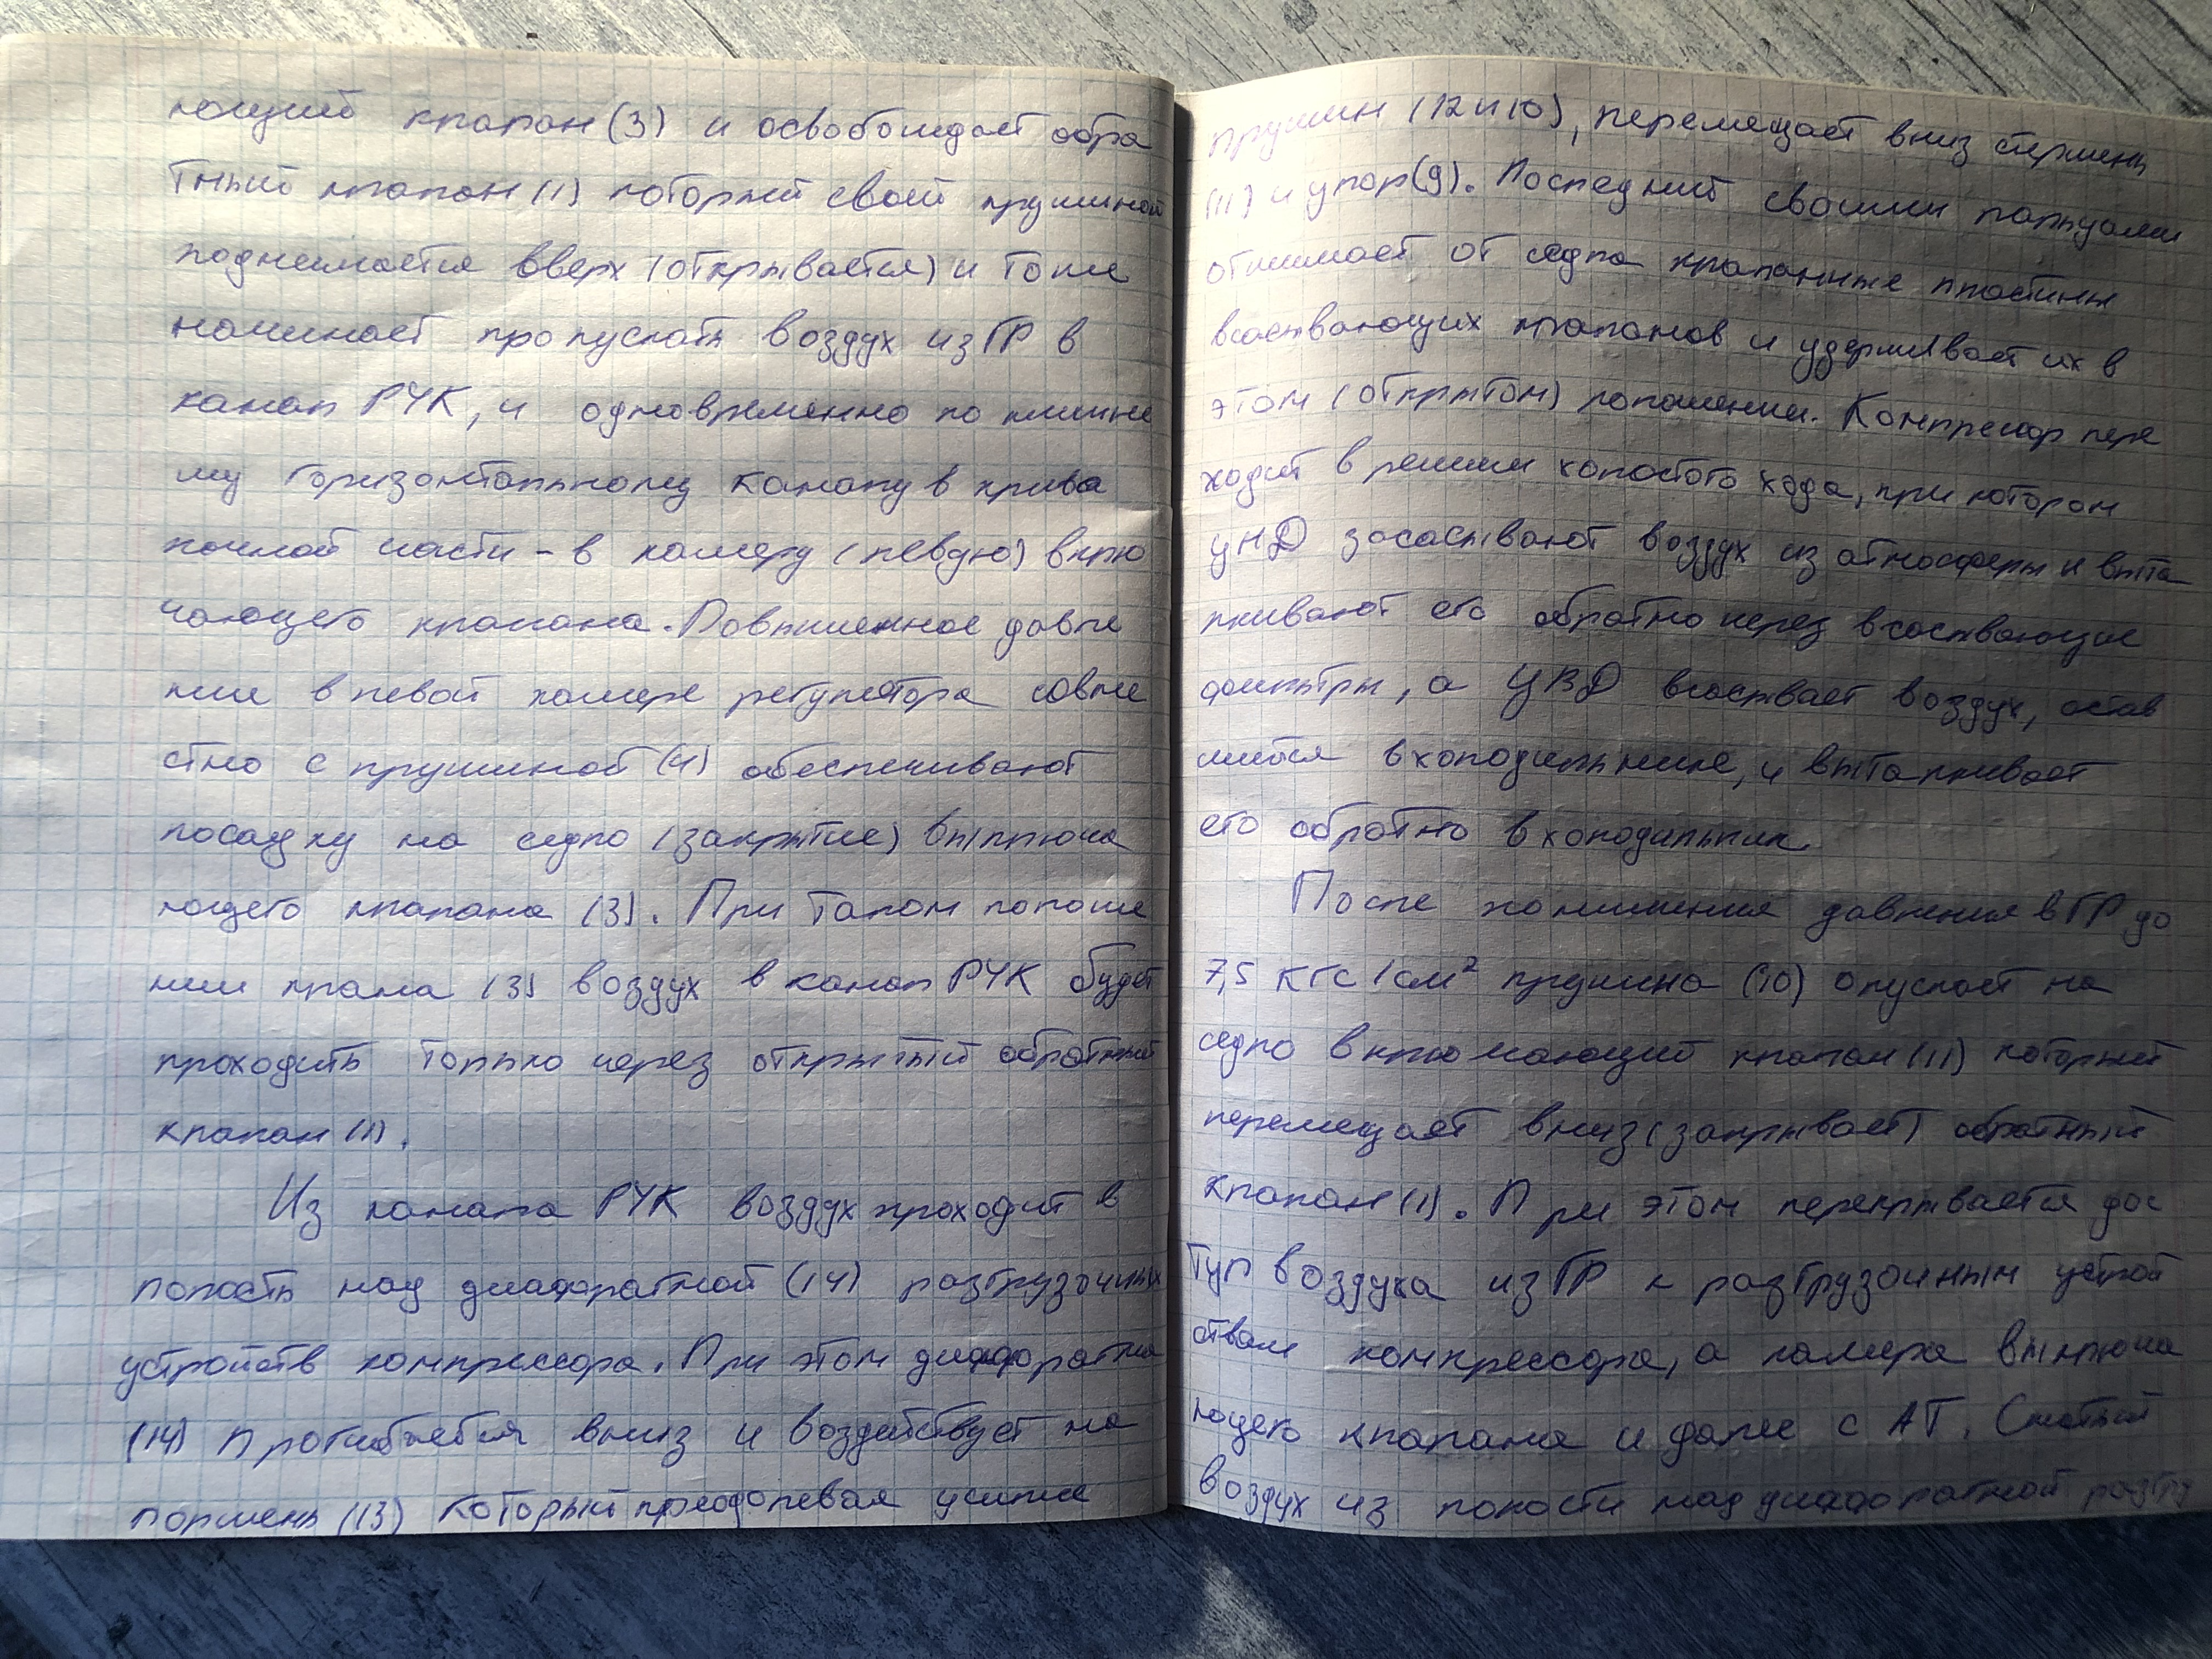 ющий клапан (3) и освобождает обра
тный клапан (1) который своей пружиной
поднимается вверх (открывается) и тоже
начинает пропускать воздух из ГР в
канал РУК, и одновременно по нижне
му горизонтальному каналу в крыша
почной части - в камеру (левую) вклю
чающего клапана. Повышенное давле
ние в левой камере регулятора совме
стно с пружиной (4) обеспечивают
посадку на седло (закрытие) выключа
ющего клапана (3). При таком положе
нии крана (3) воздух в канал РУК будет
проходить только через открытый обратный
клапан (1).
Из канала РУК воздух проходит в
полость над диафрагмой (14) разгрузочных
устройств компрессора. При этом диафрагма
(14) прогибается вниз и воздействует на
поршень (13) который преодолевая усилие
пружин (12 и 10), перемещает вниз стержень
(11) и упор (9). Последний своими пальцами
отжимает от седла клапанные пластины
всасывающих клапанов и удерживает их в
этом (открытом) положении. Компрессор пере
ходит в режим холостого хода, при котором
ЦНД засасывают воздух из атмосферы и выта
лкивают его обратно через всасывающие
фильтры, а ЦВД всасывает воздух, остав
шийся в холодильнике, и выталкивает
его обратно в холодильник.
После понижения давления в ГР до
7,5 кгс/см² пружина (10) опускает на
седло включающий клапан (11) который
перемещает вниз (закрывает) обратный
клапан (1). При этом перекрывается дос
туп воздуха из ГР к разгрузочным устрой
ствам компрессора, а камера выключа
ющего клапана и далее с АТ. Сжатый
воздух из полости над диафрагмой разгру